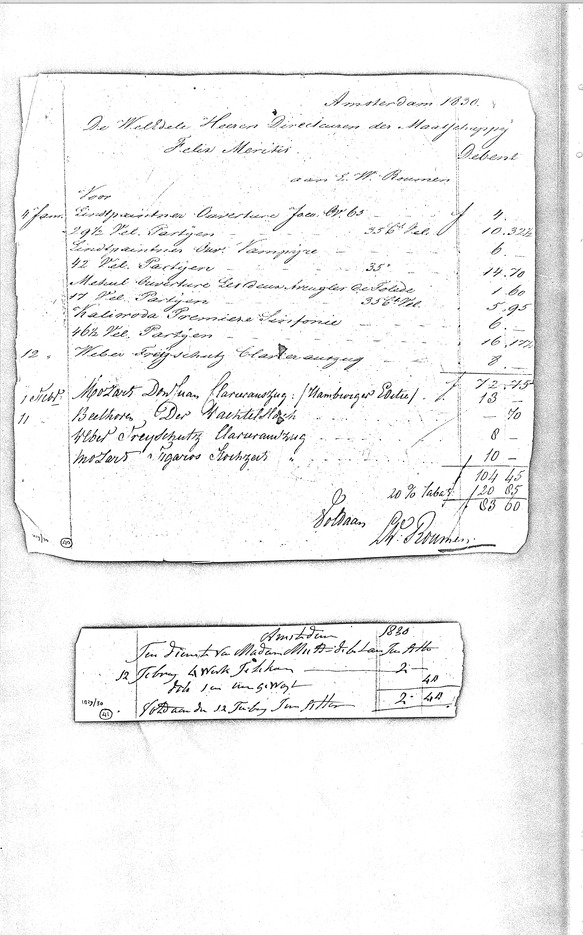 Amsterdam 1830.
De WelEdele Heeren Directeuren der Maatschappij
Felix Meritis.
Debent
aan L. W. Roumen
Voor
4 Jan. Lindpaintner Ouverture Joco Nr. 63 f 4 .
29½ Vel. Partijen 35 ct Vel. 10.32½
Lindpaintner Ouv. Vampijre 6 -
42 Vel. Partijen 35 14.70
Mehul Ouverture Les deux Aveugles de Tolede 1 60
17 Vel. Partijen 35 ct Vel. 5.95
Kalivoda Premiere Sinfonie 6 -
46½ Vel. Partijen 16.17½
12 " Weber Freyschutz Clavierauszug 8 -
f 72.75
1 Febr. Mozart Don Juan Clavierauszug. (Hamburger Editie). 13 -
11 Beethoven Der Wachtelschlag - 70
Weber Freyschutz Clavierauszug 8 -
Mozart Figaros Hochzeit " 10 -
104 45
20 % Rabat f 20 85
83 60
Voldaan
L.W. Roumen.
1829/30
40
Amsterdam 1830
Ten dienste van Madam
12 Febry 4 Werk 2 -
40
2 . 40
Voldaan den 12 Febry
1829/30
41